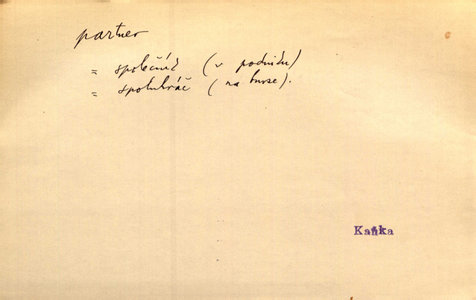 partner
= společník (v podniku)
= spoluhráč (na burse).
Kaňka